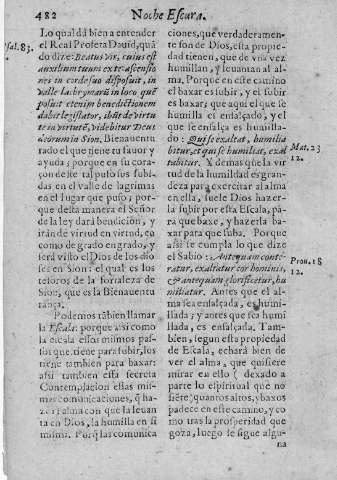 482 Noche Escura.
Lo qual dá bien a entender
el Real Profeta Dauid, quã
do dize: Beatus vir, cuius est
auxilium tuum ex te: ascensio
nes in corde suo disposuit, in
valle lachrymarũ in loco quẽ
posuit etenim benedictionem
dabit legislator, ibũt de virtu
te in virtutẽ, videbitur Deus
deorum in Sion, Bienauentu
rado el que tiene tu fauor y
ayuda; porque en su cora-
çon deste tal puso sus subi-
das en el valle de lagrimas
en el lugar que puso; por-
que desta manera el Señor
de la ley dará bendicion, y
irán de virtud en virtud, co
mo de grado en grado, y
será visto el Dios de los dio
ses en Sion: el qual es los
tesoros de la fortaleza de
Sion, que es la Bienauentu
rança.
Podemos tãbien llamar
la Escala: porque assi como
la escala essos mismos pas-
sos que tiene para subir, los
tiene tambien para baxar:
assi tambien esta secreta
Contemplacion essas mis-
mas comunicaciones, q̃ ha
ze al alma con que la leuan
ta en Dios, la humilla en si
misma. Porq̃ las comunica
Psal. 83.
ciones, que verdaderamen-
te son de Dios, esta propie-
dad tienen, que de vna vez
humillan, y leuantan al al-
ma. Porque en este camino
el baxar es subir, y el subir
es baxar; que aqui el que se
humilla es ensalçado, y el
que se ensalça es humilla-
do: Qui se exaltat, humilia
bitur, et qui se humiliat, exal
tabitur. Y demas que la vir
tud de la humildad es gran-
deza para exercitar al alma
en ella, suele Dios hazer-
la subir por esta Escala, pá
ra que baxe, y hazerla ba-
xar para que suba. Porque
assi se cumpla lo que dize
el Sabio: Antequam conte-
ratur, exaltatur cor hominis,
& antequam glorificetur, hu
miliatur. Antes que el al-
ma sea ensalçada, es humi-
llada; y antes que sea humi
llada, es ensalçada. Tam-
bien, segun esta propiedad
de Escala, echará bien de
ver el alma, que quisiere
mirar en ello (dexado a
parte lo espiritual que no
siẽte) quantos altos, y baxos
padece en este camino, y co
mo tras la prosperidad que
goza, luego se sigue algu-
na
Mat. 23
12.
Prou. 18
12.